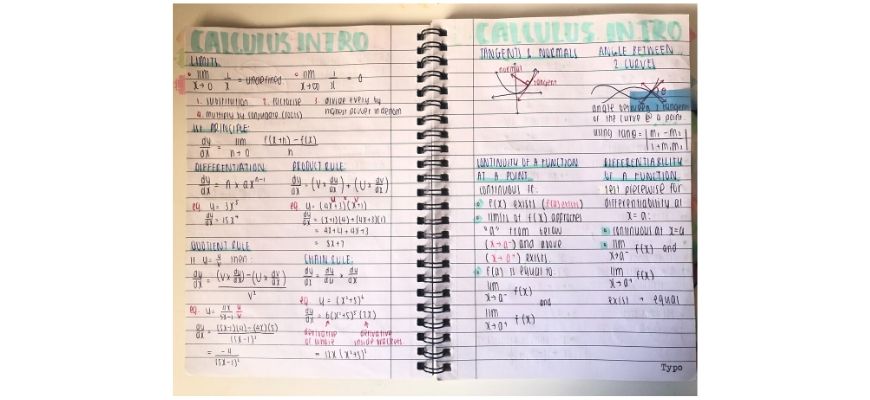 CALCULUS INTRO
LIMITS
lim x→0 1/x = undefined
lim x→∞ 1/x = 0
1. substitution 2. factorise 3. divide every by
highest power in denom
4. multiply by conjugate (rats)
1st PRINCIPLE:
dy/dx = lim h→0 f(x+h) - f(x) / h
DIFFERENTIATION
dy/dx = n × ax^(n-1)
eg. y = 3x^5
dy/dx = 15x^4
PRODUCT RULE
dy/dx = (V × du/dx) + (U × dv/dx)
eg. y = (4x+3)(x+1)
dy/dx = (x+1)(4) + (4x+3)(1)
= 4x+4+4x+3
= 8x+7
QUOTIENT RULE
if y = u/v then:
dy/dx = (V × du/dx) - (U × dv/dx) / V²
eg. y = 4x/5x-1 u/v
dy/dx = (5x-1)(4) - (4x)(5) / (5x-1)²
= -4 / (5x-1)²
CHAIN RULE:
dy/dx = dy/du × du/dx
eg. y = (x²+5)⁶
dy/dx = 6(x²+5)⁵(2x)
derivative of whole
derivative inside brackets
= 12x(x²+5)⁵
CALCULUS INTRO
TANGENTS & NORMALS
normal
tangent
ANGLE BETWEEN
2 CURVES
θ
angle between 2 tangents
of the curve @ a point
using tanθ = |m₁ - m₂ / 1+m₁m₂|
CONTINUITY OF A FUNCTION
AT A POINT
continuous if:
f(x) exists (f(a) exists)
limits of f(x) approaches
"a" from below
(x→a⁻) and above
(x→a⁺) exists
f(a) is equal to:
lim x→a⁻ f(x)
and
lim x→a⁺ f(x)
DIFFERENTIABILITY
OF A FUNCTION
test piecewise for
differentiability at
x = a:
continuous at x=a
lim x→a⁻ f(x) and
lim x→a⁺ f(x)
exist + equal
Typo